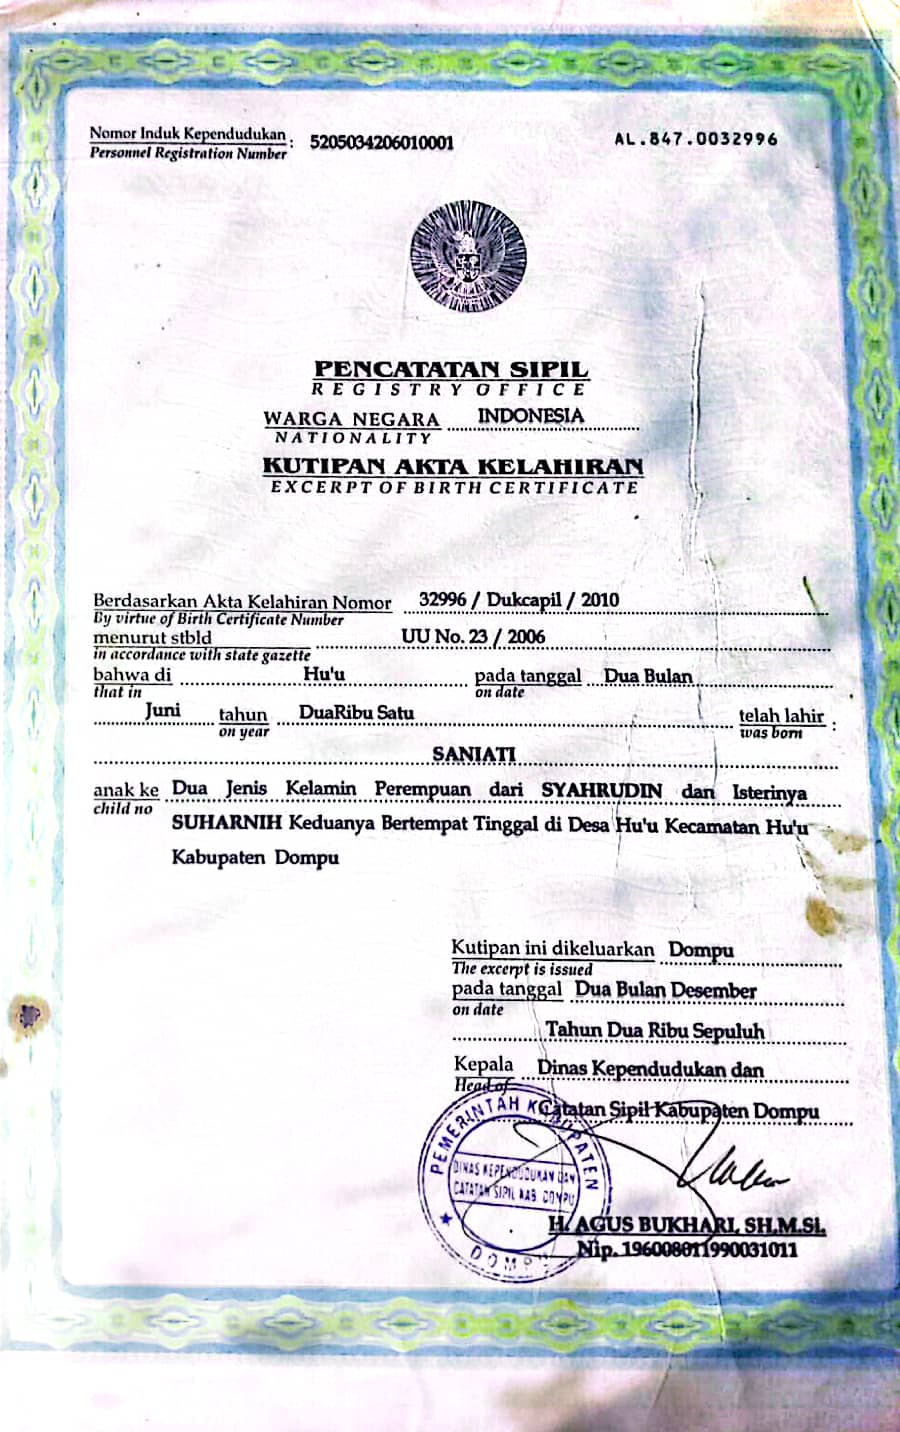 Nomor Induk Kependudukan : 5205034206010001 AL.847.0032996
Personnel Registration Number
PENCATATAN SIPIL
REGISTRY OFFICE
WARGA NEGARA INDONESIA
NATIONALITY
KUTIPAN AKTA KELAHIRAN
EXCERPT OF BIRTH CERTIFICATE
Berdasarkan Akta Kelahiran Nomor 32996 / Dukcapil / 2010
By virtue of Birth Certificate Number
menurut stbld UU No. 23 / 2006
in accordance with state gazette
bahwa di Hu'u pada tanggal Dua Bulan
that in on date
Juni tahun DuaRibu Satu telah lahir :
on year was born
SANIATI
anak ke Dua Jenis Kelamin Perempuan dari SYAHRUDIN dan Isterinya
child no
SUHARNIH Keduanya Bertempat Tinggal di Desa Hu'u Kecamatan Hu'u
Kabupaten Dompu
Kutipan ini dikeluarkan Dompu
The excerpt is issued
pada tanggal Dua Bulan Desember
on date
Tahun Dua Ribu Sepuluh
Kepala Dinas Kependudukan dan
Head of
Catatan Sipil Kabupaten Dompu
PEMERINTAH KABUPATEN
DINAS KEPENDUDUKAN DAN
CATATAN SIPIL KAB DOMPU
DOMPU
H. AGUS BUKHARI, SH,M.SI,
Nip. 196008011990031011